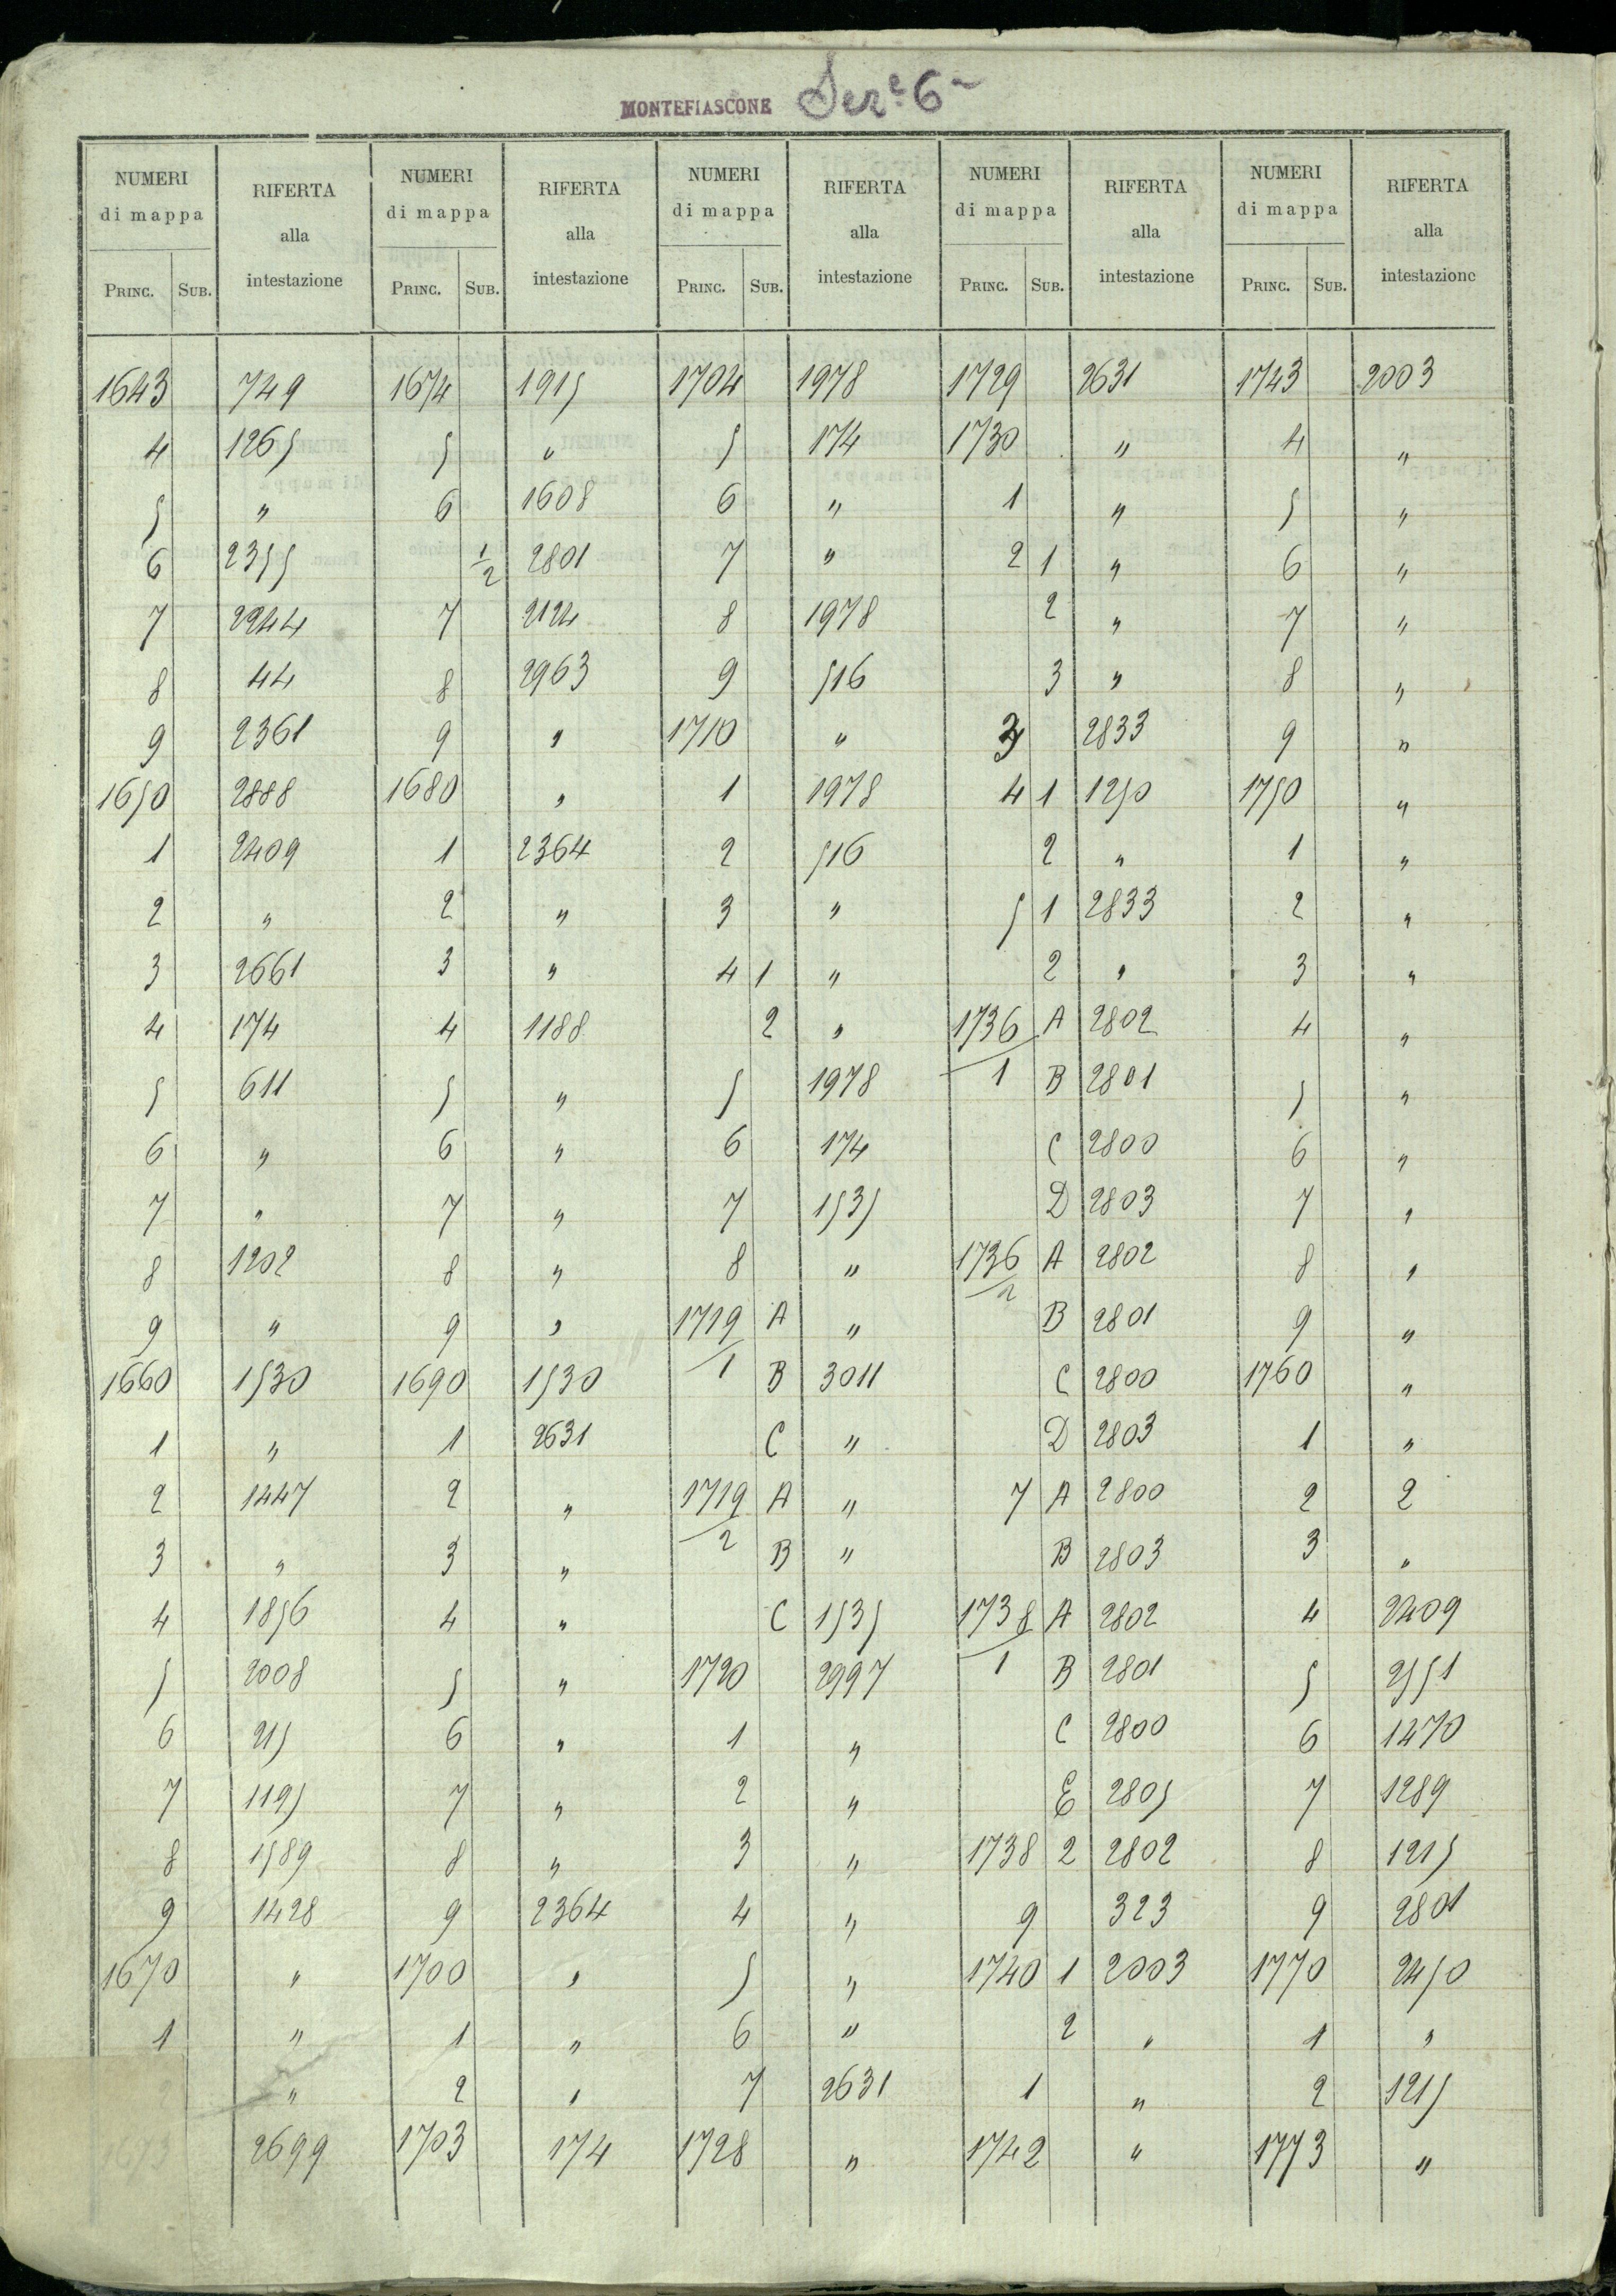 MONTEFIASCONE Sez.e 6~
NUMERI di mappa RIFERTA alla intestazione NUMERI di mappa RIFERTA alla intestazione NUMERI di mappa RIFERTA alla intestazione NUMERI di mappa RIFERTA alla intestazione NUMERI di mappa RIFERTA alla intestazione
PRINC. SUB. PRINC. SUB. PRINC. SUB. PRINC. SUB. PRINC. SUB.
1643 749 1674 1915 1704 1978 1729 2631 1743 2003
4 1265 5 " 5 174 1730 " 4 "
5 " 6 1608 6 " 1 " 5 "
6 2355 1/2 2801 7 " 2 1 " 6 "
7 2244 7 2124 8 1978 2 " 7 "
8 44 8 2963 9 516 3 " 8 "
9 2361 9 " 1710 " 3 2833 9 "
1650 2888 1680 " 1 1978 4 1 1250 1750 "
1 2409 1 2364 2 516 2 " 1 "
2 " 2 " 3 " 5 1 2833 2 "
3 2661 3 " 4 1 " 2 " 3 "
4 174 4 1188 2 " 1736 A 2802 4 "
5 611 5 " 5 1978 1 B 2801 5 "
6 " 6 " 6 174 C 2800 6 "
7 " 7 " 7 1535 D 2803 7 "
8 1202 8 " 8 " 1736/2 A 2802 8 "
9 " 9 " 1719 A " B 2801 9 "
1660 1530 1690 1530 1 B 3011 C 2800 1760 "
1 " 1 2631 C " D 2803 1 "
2 1447 2 " 1719 A " 7 A 2800 2 2
3 " 3 " 2 B " B 2803 3 "
4 1856 4 " C 1535 1738 A 2802 4 2409
5 2008 5 " 1720 2997 1 B 2801 5 2551
6 215 6 " 1 " C 2800 6 1470
7 1195 7 " 2 " E 2805 7 1289
8 1589 8 " 3 " 1738 2 2802 8 1215
9 1428 9 2364 4 " 9 323 9 2801
1670 " 1700 " 5 " 1740 1 2003 1770 2450
1 " 1 " 6 " 2 " 1 "
2 " 2 " 7 2631 1 " 2 1215
1673 2699 1703 174 1728 " 1742 " 1773 "